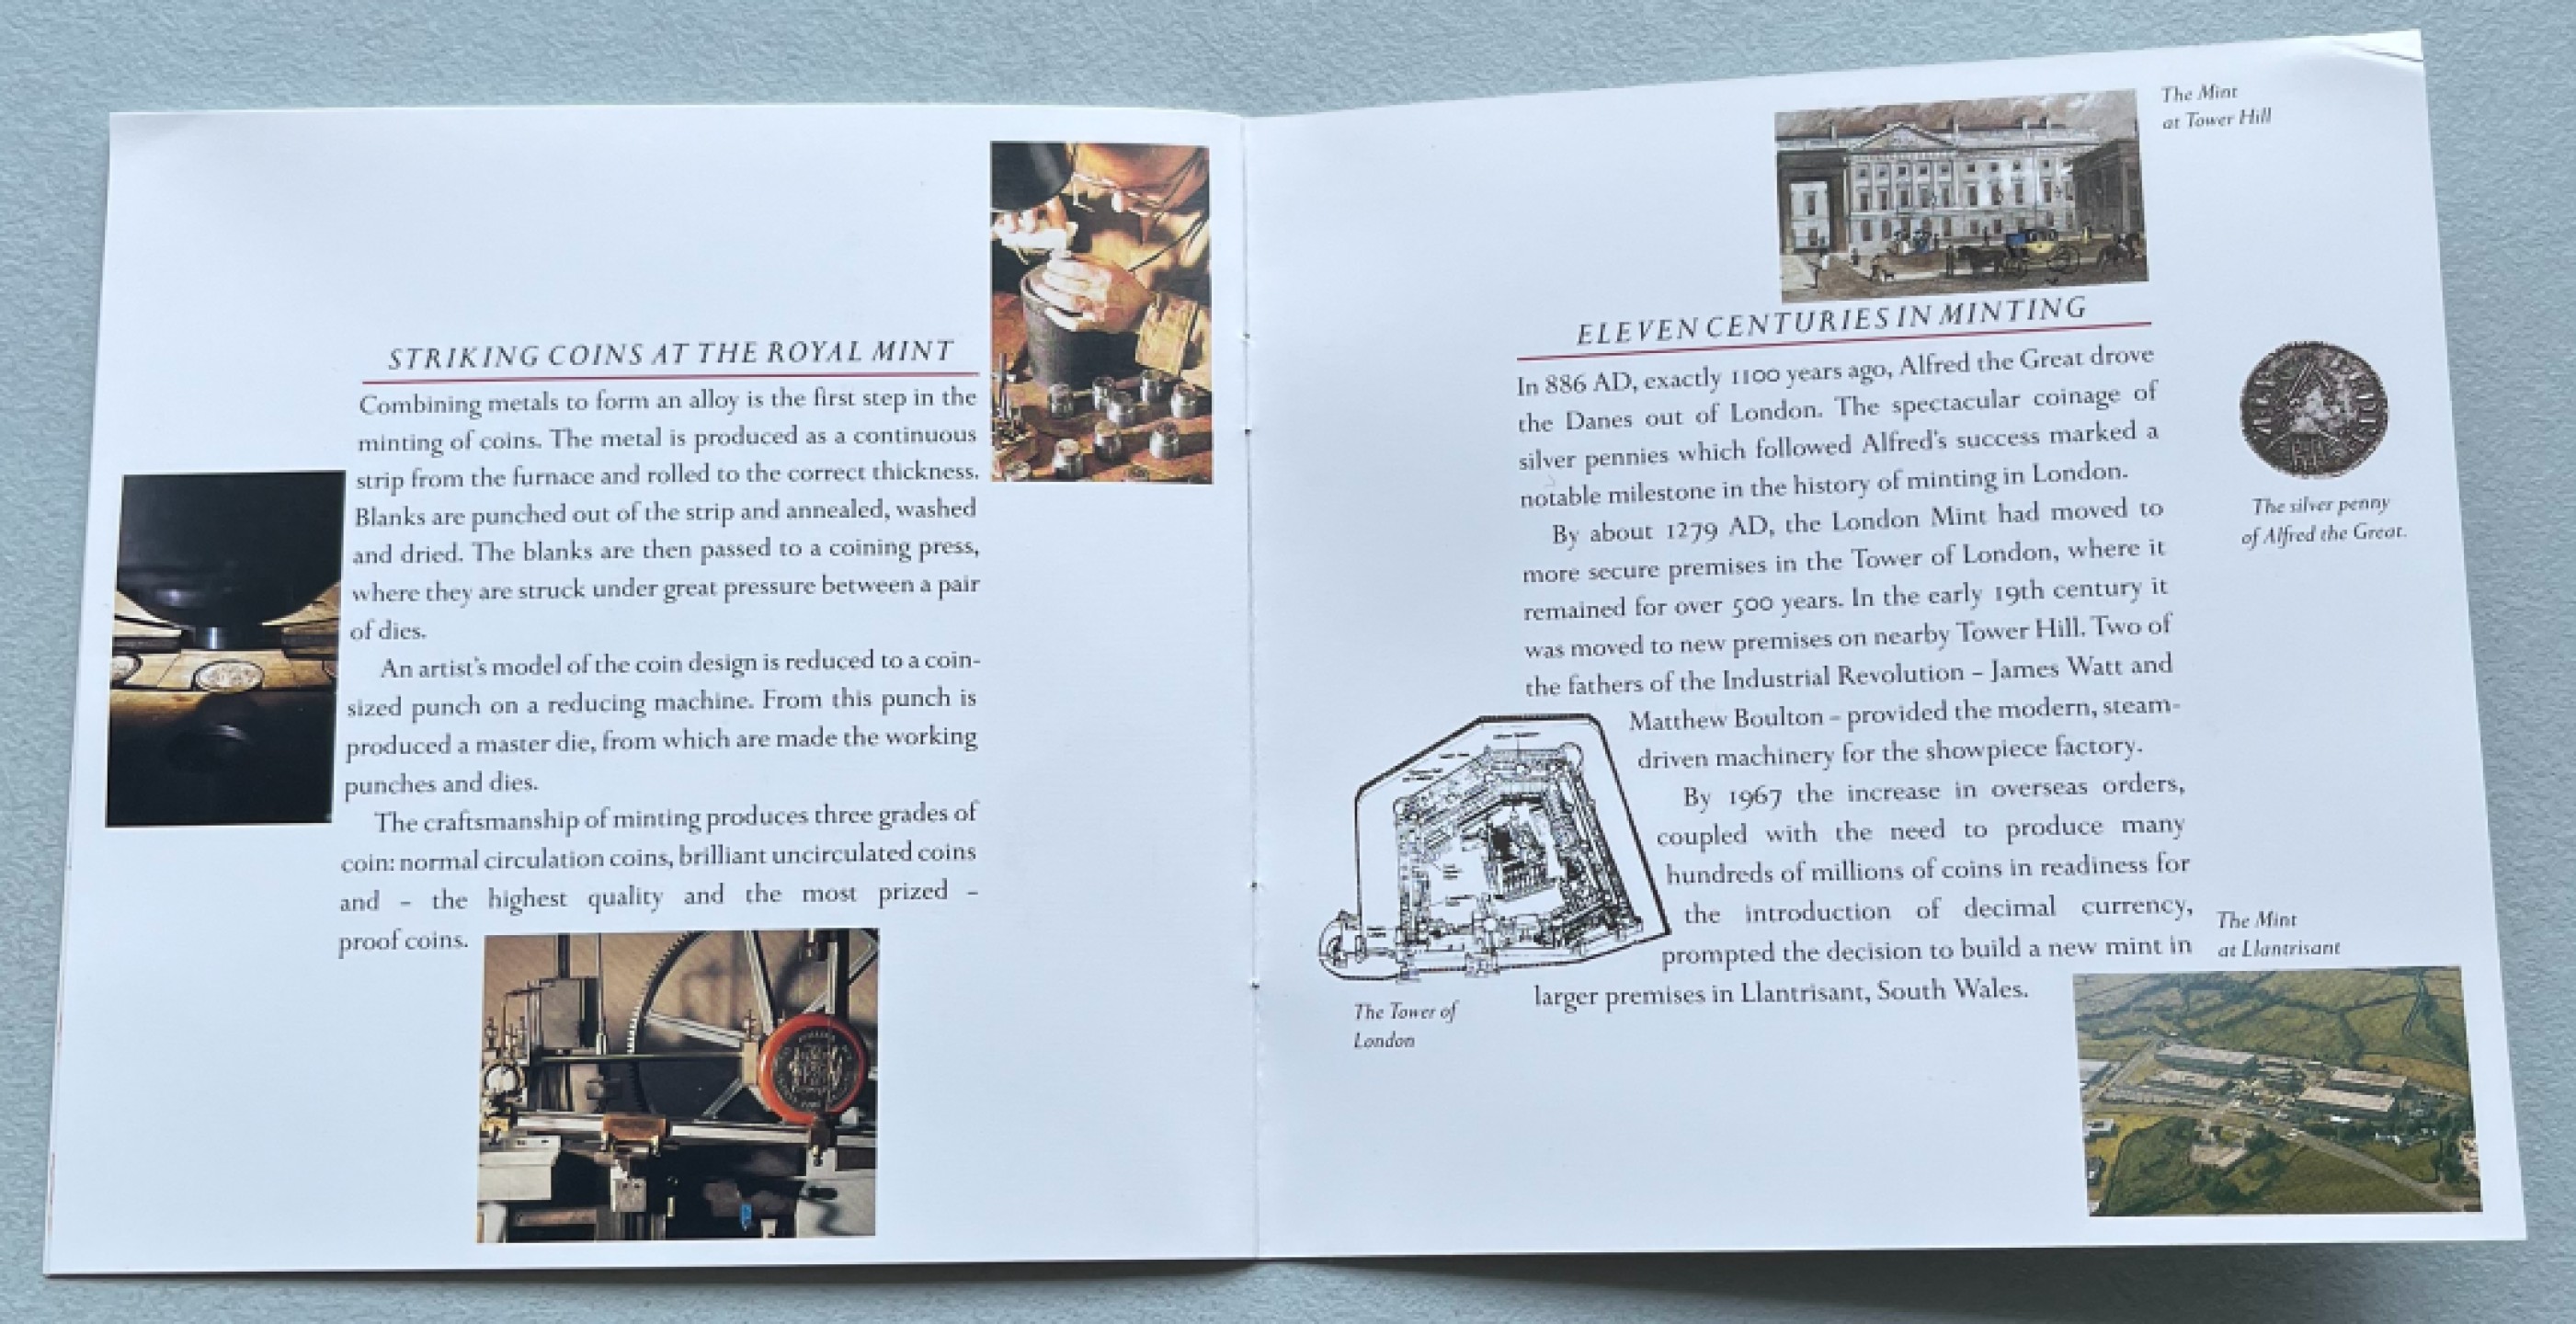 STRIKING COINS AT THE ROYAL MINT
Combining metals to form an alloy is the first step in the
minting of coins. The metal is produced as a continuous
strip from the furnace and rolled to the correct thickness.
Blanks are punched out of the strip and annealed, washed
and dried. The blanks are then passed to a coining press,
where they are struck under great pressure between a pair
of dies.
An artist's model of the coin design is reduced to a coin-
sized punch on a reducing machine. From this punch is
produced a master die, from which are made the working
punches and dies.
The craftsmanship of minting produces three grades of
coin: normal circulation coins, brilliant uncirculated coins
and – the highest quality and the most prized –
proof coins.
The Mint
at Tower Hill
ELEVEN CENTURIES IN MINTING
In 886 AD, exactly 1100 years ago, Alfred the Great drove
the Danes out of London. The spectacular coinage of
silver pennies which followed Alfred's success marked a
notable milestone in the history of minting in London.
By about 1279 AD, the London Mint had moved to
more secure premises in the Tower of London, where it
remained for over 500 years. In the early 19th century it
was moved to new premises on nearby Tower Hill. Two of
the fathers of the Industrial Revolution – James Watt and
Matthew Boulton – provided the modern, steam-
driven machinery for the showpiece factory.
By 1967 the increase in overseas orders,
coupled with the need to produce many
hundreds of millions of coins in readiness for
the introduction of decimal currency,
prompted the decision to build a new mint in
larger premises in Llantrisant, South Wales.
The silver penny
of Alfred the Great.
The Tower of
London
The Mint
at Llantrisant